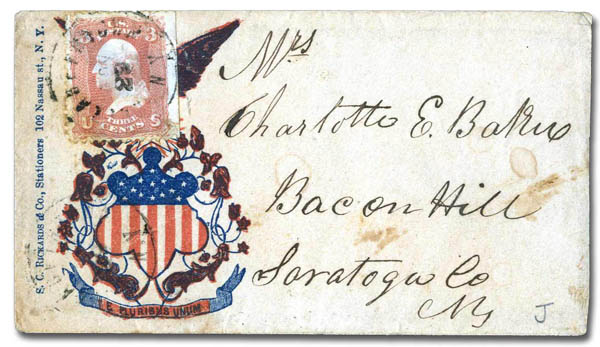 S. C. RICKARDS & Co., Stationers 102 Nassau st., N. Y.
U.S.
3 3
THREE
CENTS
U S
23
E PLURIBUS UNUM
Mrs
Charlotte E. Baker
Bacon Hill
Saratoga Co
Ny
J